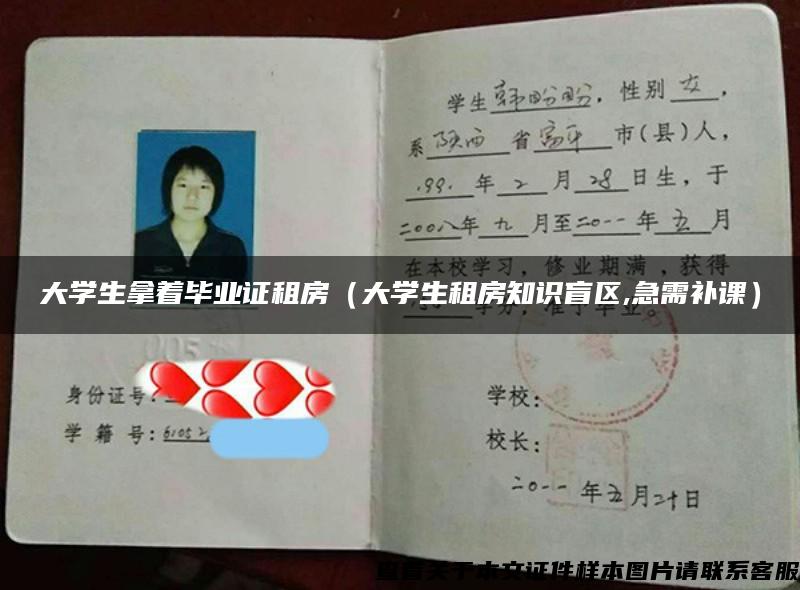 学生韩盼盼，性别女，
系陕西省富平市(县)人，
1991年2月28日生，于
二00八年九月至二0一一年五月
在本校学习，修业期满，获得
大学生拿着毕业证租房（大学生租房知识盲区,急需补课）
学分，准予毕业。
005
身份证号:
学 籍 号: 61052
学校:
校长:
二0一一年五月二十日
查看关于本文证件样本图片请联系客服